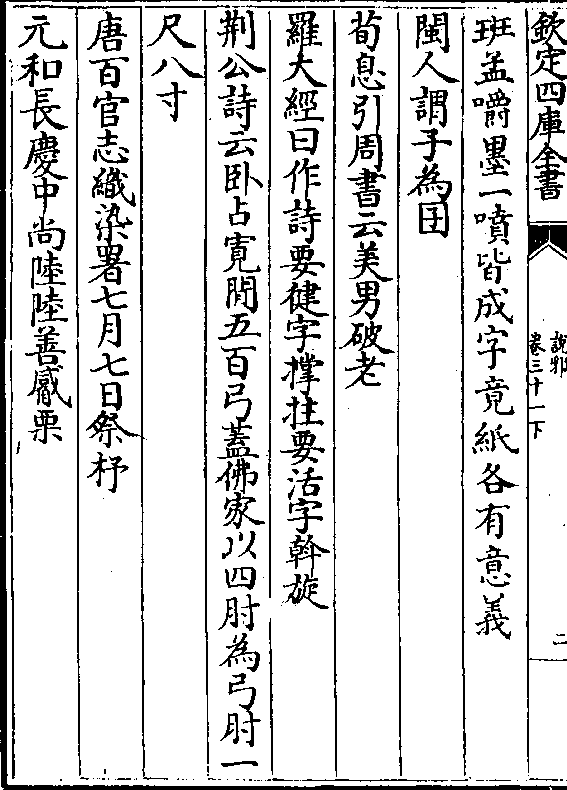 欽定四庫全書
說郛
卷三十一下
二
班孟嚼墨一噴皆成字竟紙各有意義
閩人謂子為囝
荀息引周書云美男破老
羅大經曰作詩要健字撐拄要活字斡旋
荆公詩云卧占寬閒五百弓蓋佛家以四肘為弓肘一
尺八寸
唐百官志織染署七月七日祭杼
元和長慶中尚陸陸善觱栗